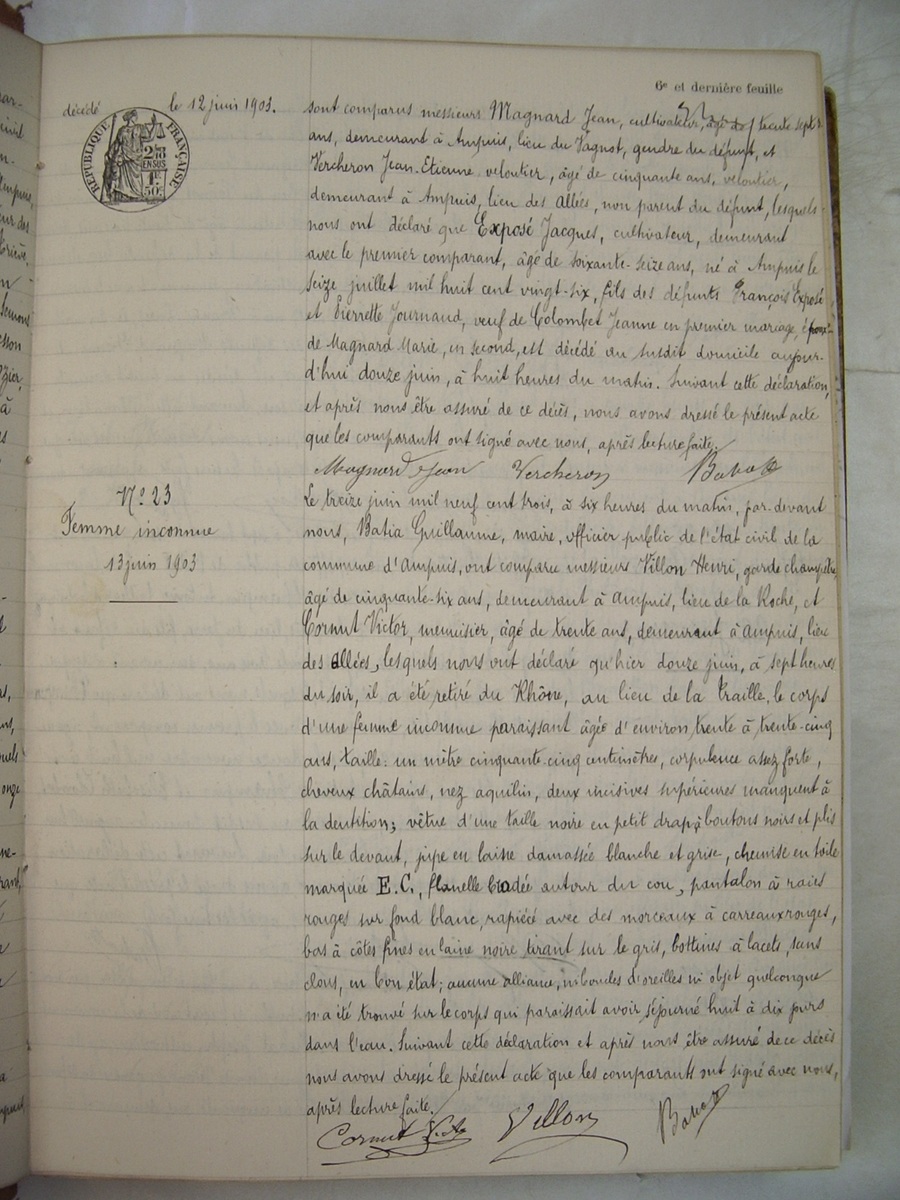 6e et dernière feuille
décédé le 12 juin 1903.
RÉPUBLIQUE FRANÇAISE
sont comparus messieurs Magnard Jean, cultivateur, trente sept
ans, demeurant à Ampuis, lieu du Vagnot, gendre du défunt, et
Vercheron Jean-Etienne veloutier, âgé de cinquante ans, veloutier,
demeurant à Ampuis, lieu des Allées, non parent du défunt, lesquels
nous ont déclaré que Exposé Jacques, cultivateur, demeurant
avec le premier comparant, âgé de soixante-seize ans, né à Ampuis le
seize juillet mil huit cent vingt-six, fils des défunts François Exposé
et Pierrette Journaud, veuf de Colombet Jeanne en premier mariage, époux
de Magnard Marie, en second, est décédé au susdit domicile aujour-
d'hui douze juin, à huit heures du matin. Suivant cette déclaration,
et après nous être assuré de ce décès, nous avons dressé le présent acte
que les comparants ont signé avec nous, après lecture faite.
Magnard Jean Vercheron
N° 23
Femme inconnue
13 juin 1903
Le treize juin mil neuf cent trois, à six heures du matin, par-devant
nous, Batia Guillaume, maire, officier public de l'état civil de la
commune d'Ampuis, ont comparu messieurs Villon Henri, garde champêtre
âgé de cinquante-six ans, demeurant à Ampuis, lieu de la Roche, et
Cornut Victor, menuisier, âgé de trente ans, demeurant à Ampuis, lieu
des Allées, lesquels nous ont déclaré qu'hier douze juin, à sept heures
du soir, il a été retiré du Rhône, au lieu de la Traille, le corps
d'une femme inconnue paraissant âgée d'environ trente à trente-cinq
ans, taille: un mètre cinquante-cinq centimètres, corpulence assez forte,
cheveux châtains, nez aquilin, deux incisives supérieures manquent à
la dentition; vêtue d'une taille noire en petit drap à boutons noirs et plis
sur le devant, jupe en laine damassée blanche et grise, chemise en toile
marquée E.C., flanelle autour du cou, pantalon à raies
rouges sur fond blanc, rapiécé avec des morceaux à carreaux rouges,
bas à côtes fines en laine noire tirant sur le gris, bottines à lacets, sans
clous, en bon état; aucune alliance, ni boucles d'oreilles ni objet quelconque
n'a été trouvé sur le corps qui paraissait avoir séjourné huit à dix jours
dans l'eau. Suivant cette déclaration et après nous être assuré de ce décès
nous avons dressé le présent acte que les comparants ont signé avec nous,
après lecture faite.
Cornut Victor Villon